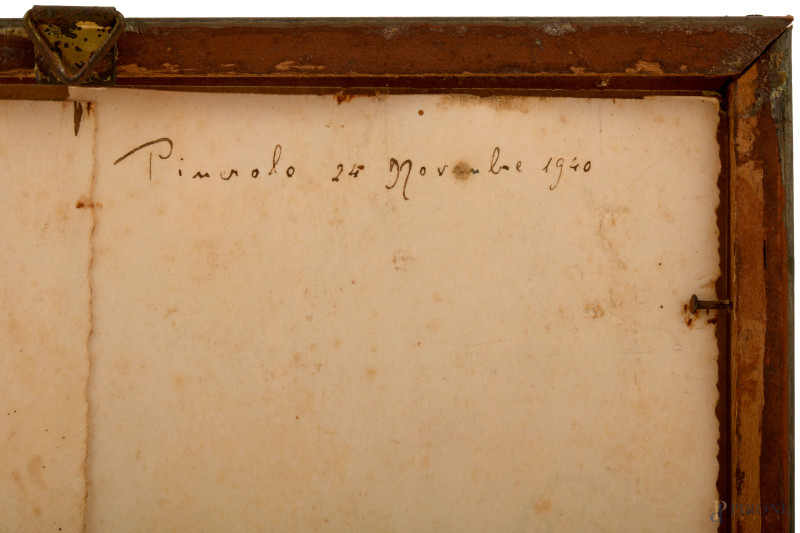 Pinerolo 24 Novembre 1940